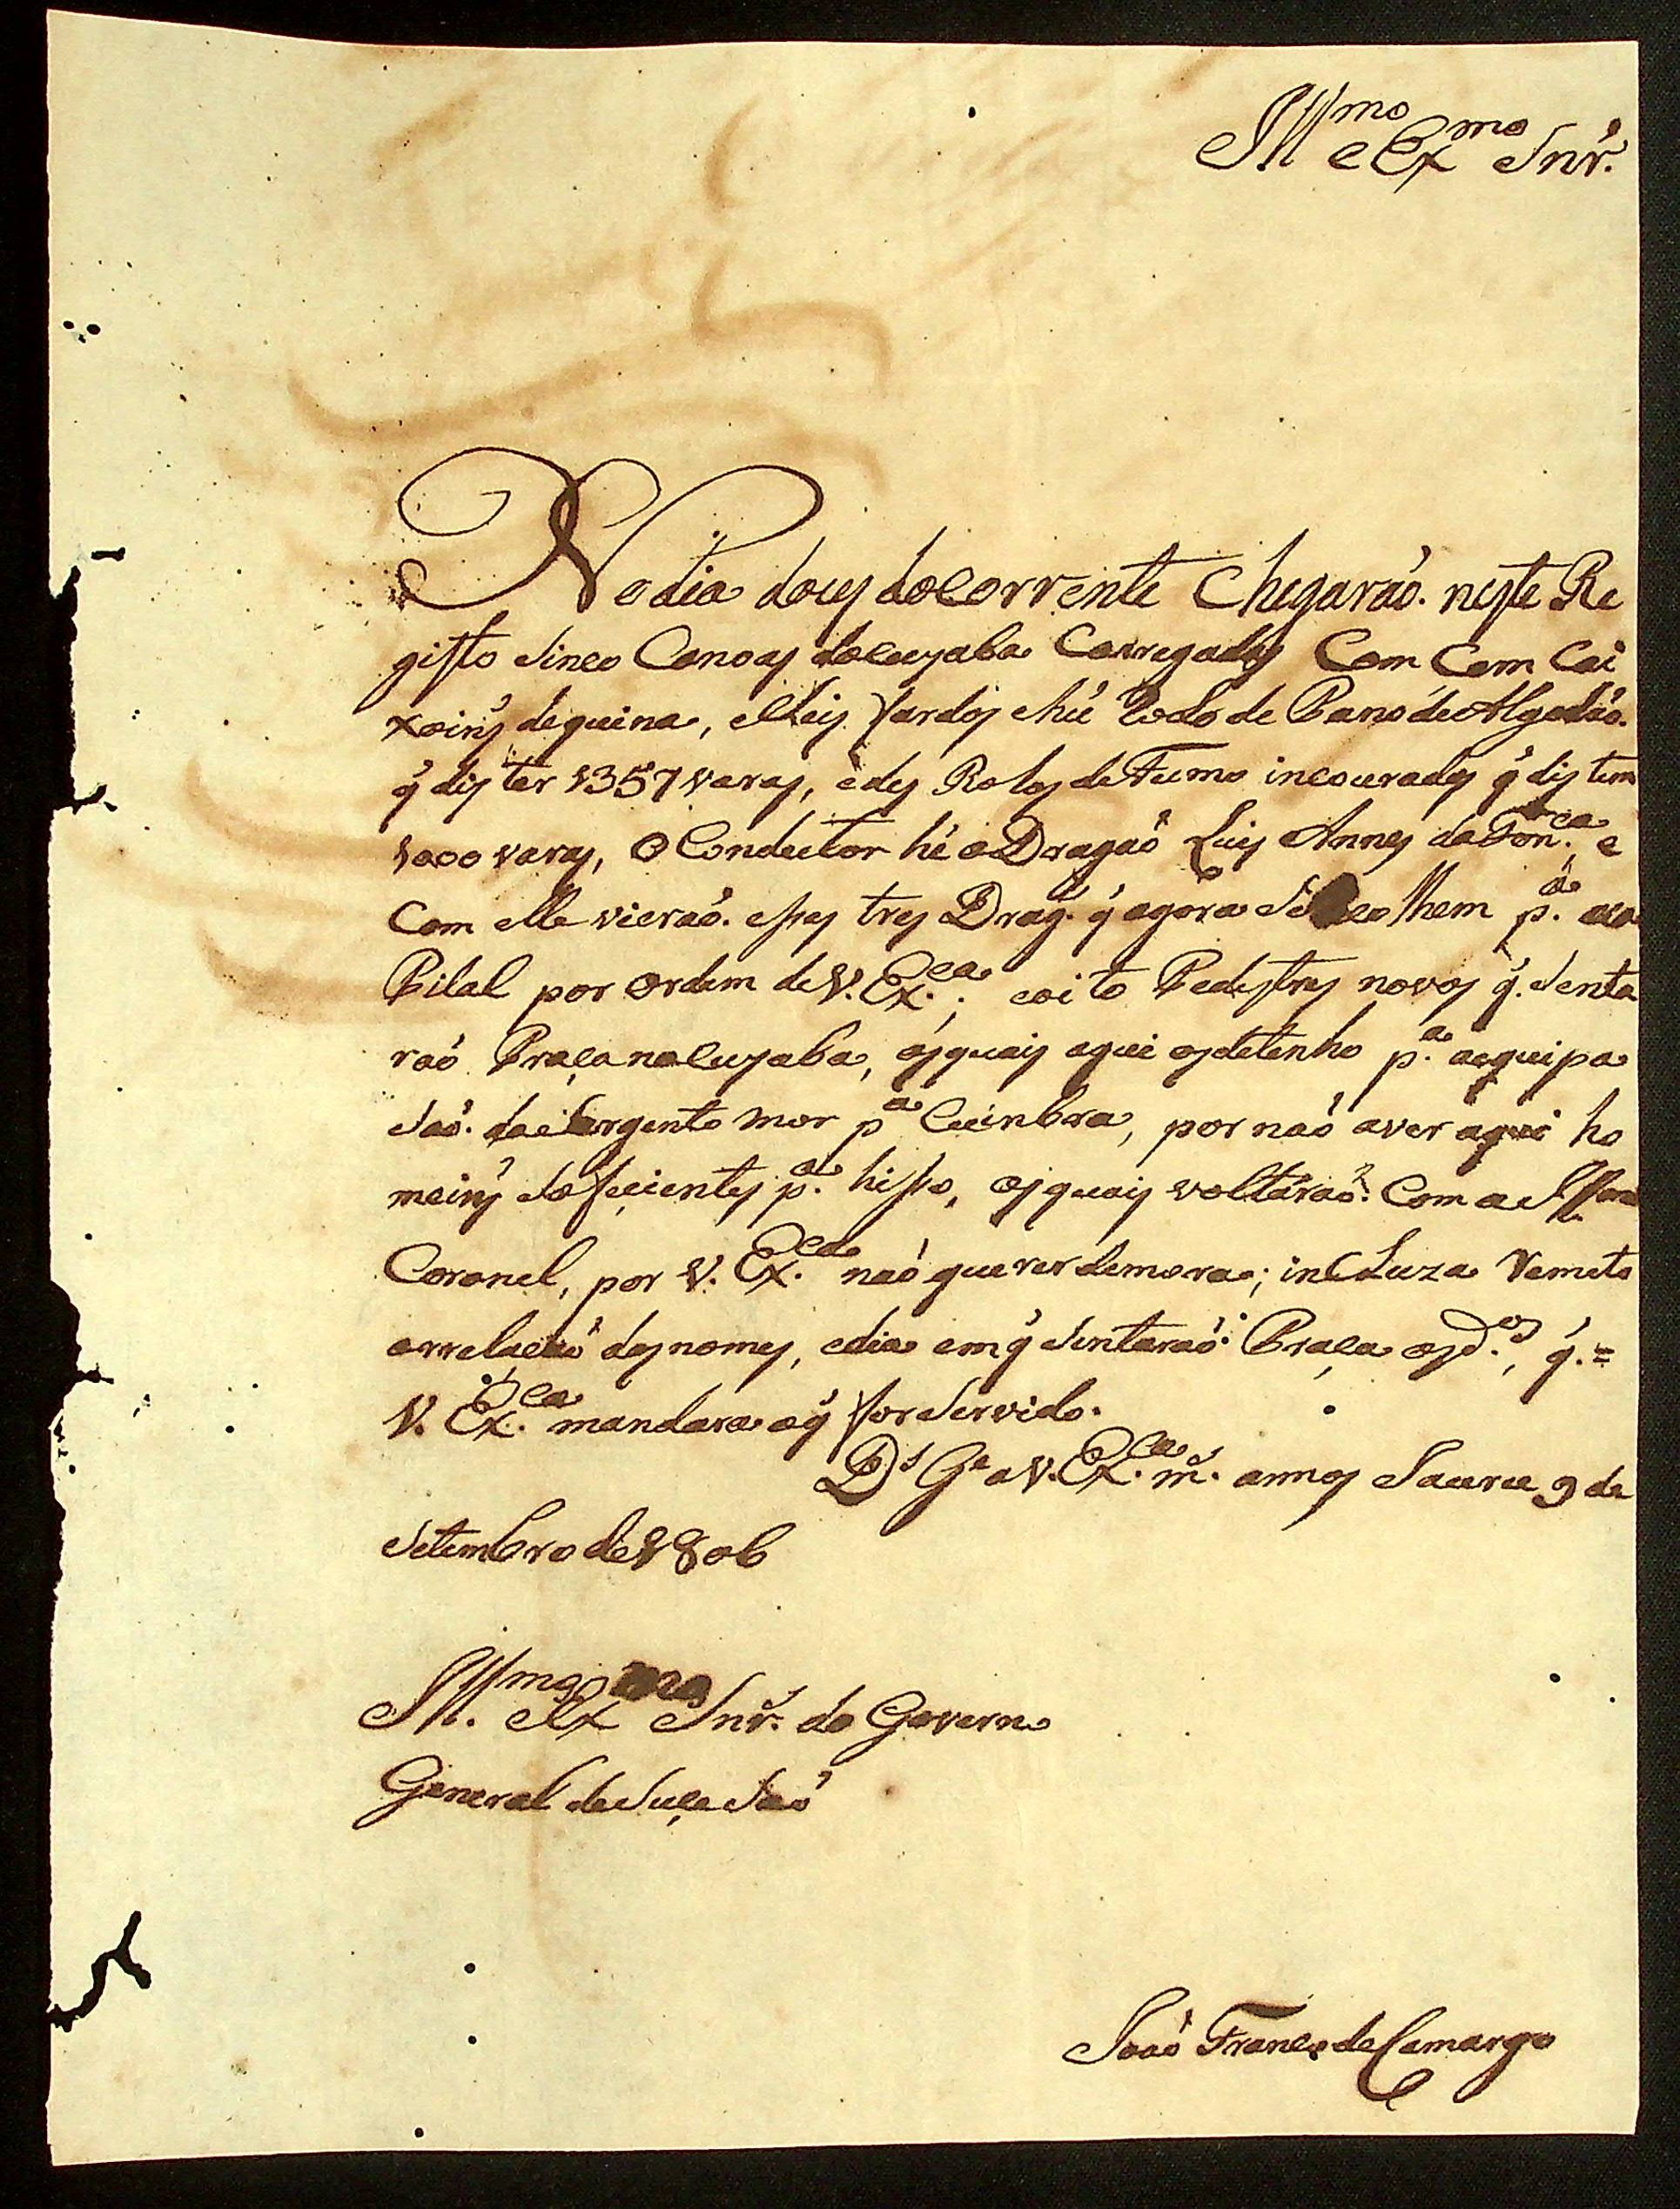 Ill.mo e Ex.mo Snr.
No dia dois do corrente Chegaraó. neste Re
gisto Sinco Canoas do Cuyaba Carregadas Com Cem Cai
xoins de quina, e Seis fardos e hú Rodo de Pano de Algodaó.
q̃ dis ter 1357 varas, e des Rolos de Fumo incourados q̃ dis tem
1000 varas, O Conductor hé o Dragaó Luis Annes da Fon.ca e
Com elle vieraó. esses tres Drag. q̃ agora Se Colhem p.a a Ca
Pital por Ordem de V. Ex.ca; e oito Pedestres novos q̃. Senta
raó Praça no Cuyaba, os quais aqui os detenho p.a a equipa
Saó. do Sargento mor p.a Cuinbra, por naó aver aqui ho
meins Soficientes p.a hisso, os quais voltáraó. Com o
Coronel, por V. Ex.ca naó querer demora; incluza Remeto
a rrelaçaó dos nomes, e dia em q̃ Sentaraó Praça os d.os, q̃. =
V. Ex.ca mandara o q̃ for Servido.
D.s G.e a V. Ex.ca m.s annos Jauru 9 de
Setembro de 1806
Ill.mo e Ex.mo Snr. do Governo
General de SuçeSaó
Joaó Franco de Camargo